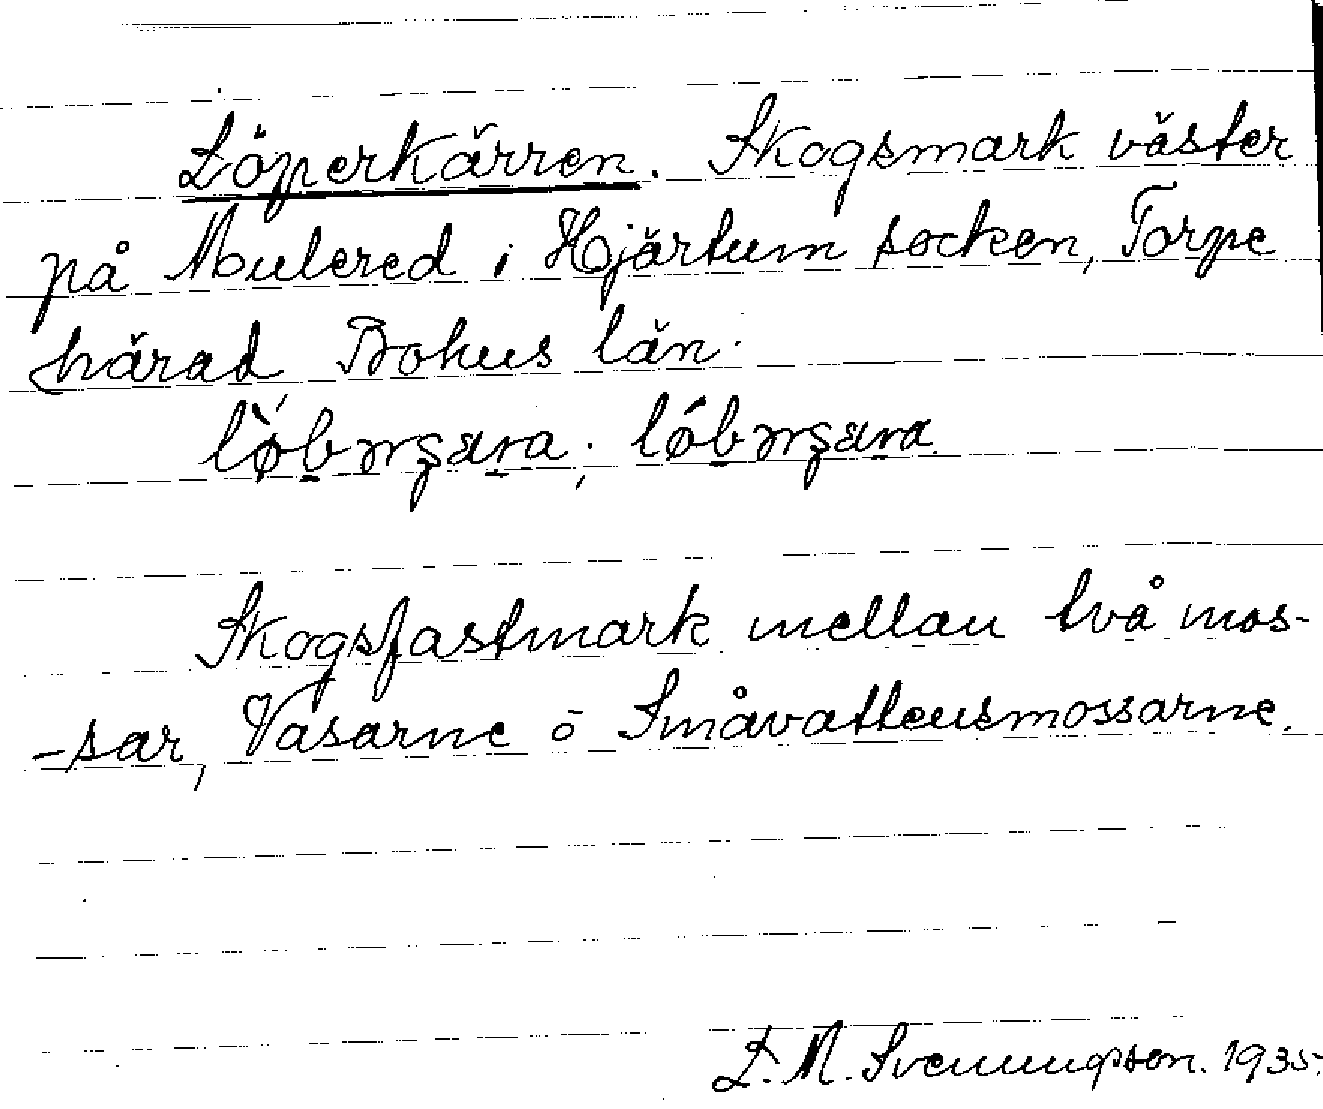 Löperkärren. Skogsmark väster
på Mulered i Hjärtum socken, Torpe
härad, Bohus län.
Skogsfastmark mellan två mos-
-sar, Vasarne o Småvattensmossarne.
L. M. Svenungsson. 1935.